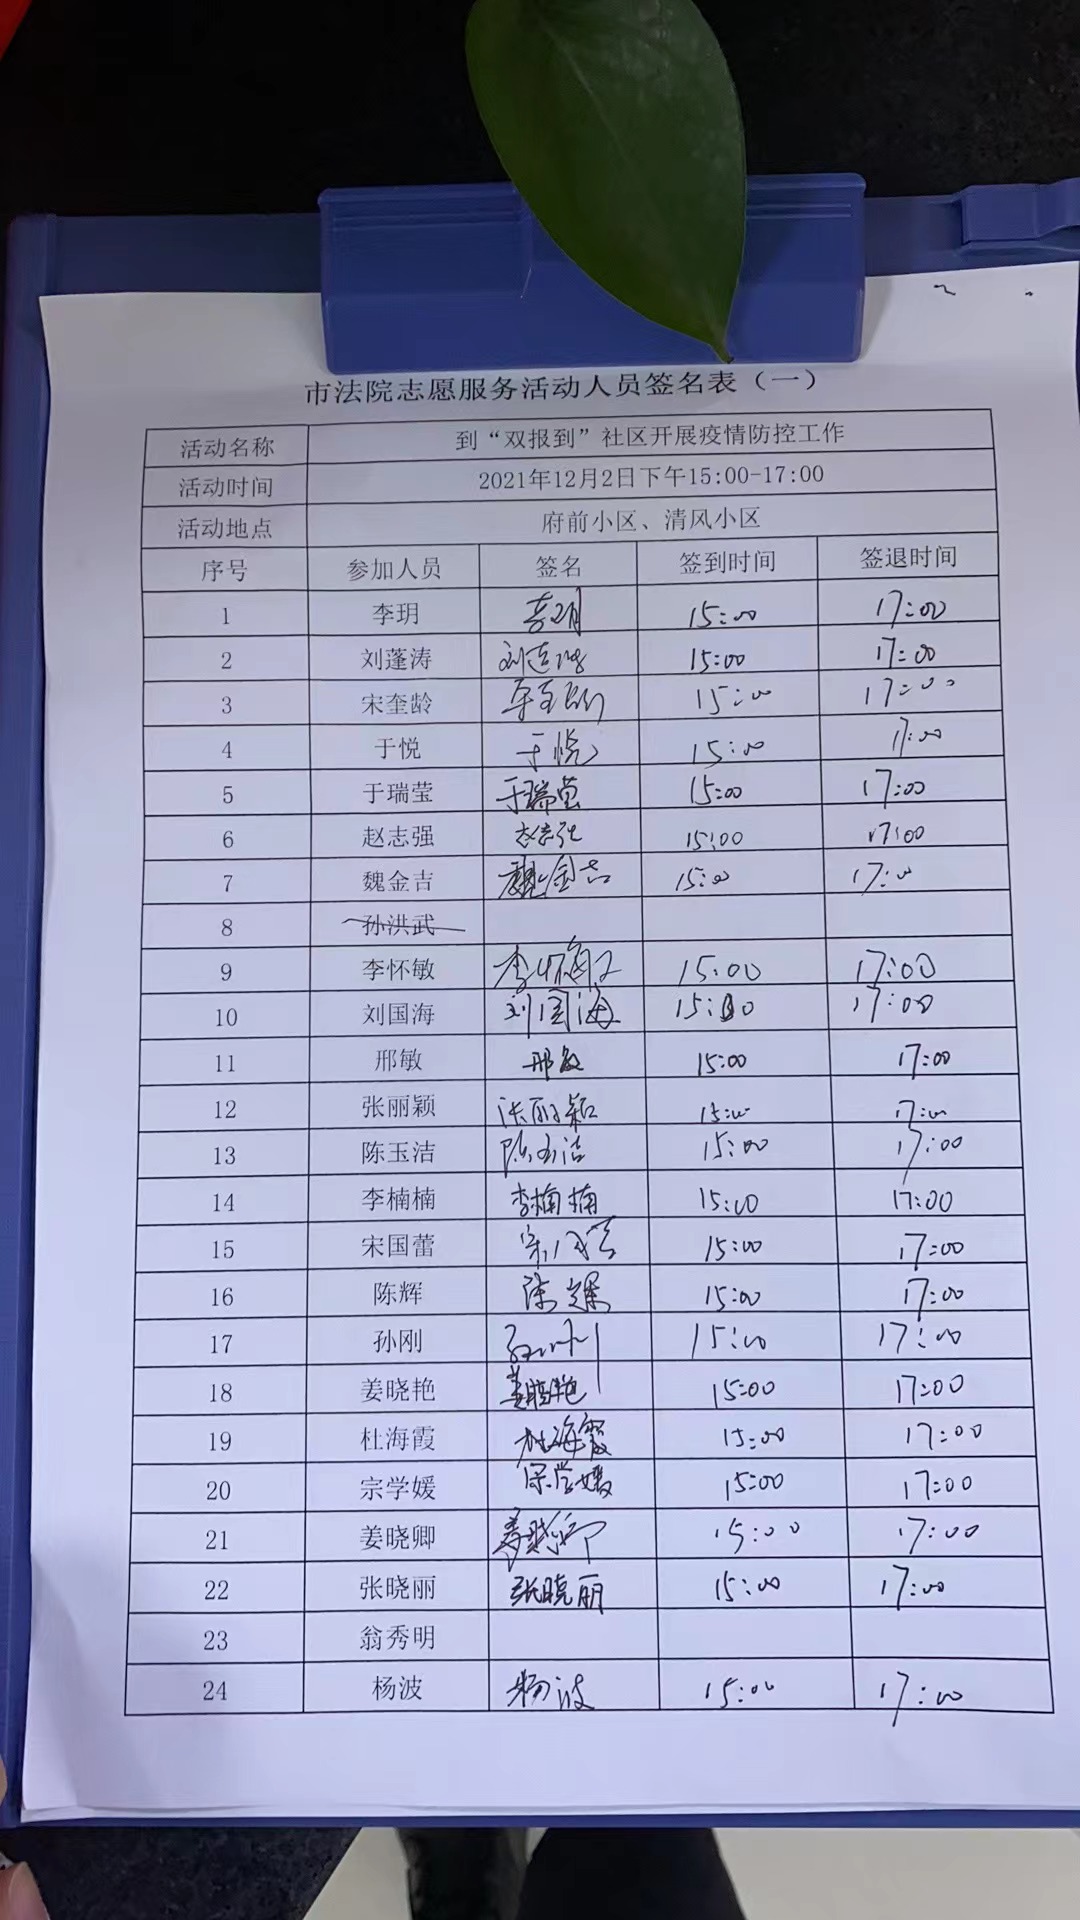 市法院志愿服务活动人员签名表（一）
活动名称 到“双报到”社区开展疫情防控工作
活动时间 2021年12月2日下午15:00-17:00
活动地点 府前小区、清风小区
序号 参加人员 签名 签到时间 签退时间
1 李玥 李玥 15:00 17:00
2 刘蓬涛 刘蓬涛 15:00 17:00
3 宋奎龄 宋奎龄 15:00 17:00
4 于悦 于悦 15:00 17:00
5 于瑞莹 于瑞莹 15:00 17:00
6 赵志强 赵志强 15:00 17:00
7 魏金吉 魏金吉 15:00 17:00
8 孙洪武
9 李怀敏 李怀敏 15:00 17:00
10 刘国海 刘国海 15:00 17:00
11 邢敏 邢敏 15:00 17:00
12 张丽颖 张丽颖 15:00 17:00
13 陈玉洁 陈玉洁 15:00 17:00
14 李楠楠 李楠楠 15:00 17:00
15 宋国蕾 宋国蕾 15:00 17:00
16 陈辉 陈辉 15:00 17:00
17 孙刚 孙刚 15:00 17:00
18 姜晓艳 姜晓艳 15:00 17:00
19 杜海霞 杜海霞 15:00 17:00
20 宗学媛 宗学媛 15:00 17:00
21 姜晓卿 姜晓卿 15:00 17:00
22 张晓丽 张晓丽 15:00 17:00
23 翁秀明
24 杨波 杨波 15:00 17:00